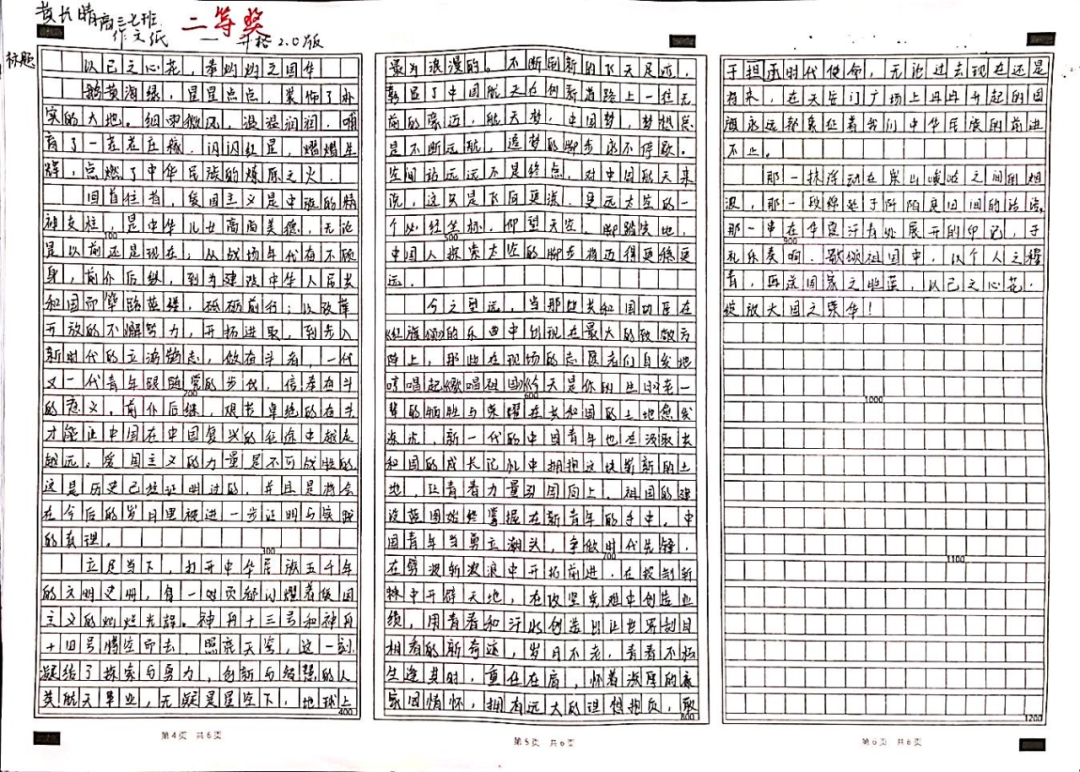 黄长晴高三七班
二等奖
作文纸 — 升格2.0版
标题
以己之心花,奉灿灿之国华
鹅黄海绿,星星点点,装饰了朴
实的大地。细雨微风,温温润润,哺
育了一茬茬庄稼。闪闪红星,熠熠生
辉,点燃了中华民族的燎原之火。
回首往昔,爱国主义是中华的精
神支柱,是中华儿女高尚美德,无论
100
是以前还是现在,从战场年代奋不顾
身,前仆后继,到为建设中华人民共
和国而筚路蓝缕,砥砺前行;从改革
开放的不懈努力,开拓进取,到步入
新时代的立鸿鹄志,做奋斗者,一代
又一代青年跟随党的步伐,信奉奋斗
200
的意义,前仆后继,艰苦卓绝的奋斗
才能让中国在中国复兴的征途中越走
越远。爱国主义的力量是不可战胜的
这是历史已经证明过的,并且是将会
在今后的岁月里被进一步证明与实践
的真理。
300
立足当下,打开中华民族五千年
的文明史册,每一页都闪耀着爱国
主义的灿烂光辉。神舟十三号和神舟
十四号腾空而去,照亮天空,这一刻
凝结了探索与勇力,创新与智慧的人
类航天事业,无疑是星空下,地球上
400
第4页 共6页
最为浪漫的。不断刷新的飞天足迹,
彰显了中国航天在创新道路上一往无
前的豪迈,航天梦,中国梦,梦想总
是不断远航,追梦的脚步永不停歇。
空间站远远不是终点,对中国航天来
说,这只是飞向更深,更远太空的一
个必经坐标,仰望天空,脚踏实地,
500
中国人探索太空的脚步将迈得更稳更
远。
今之望远,当那些共和国功臣在
《红旗颂》的乐曲中出现在最大的致敬方
阵上,那些在现场的志愿者们自发地
哼唱起《歌唱祖国》《今天是你的生日》老一
600
辈的牺牲与荣耀在共和国的土地愈发
泰虎,新一代的中国青年也在汲取共
和国的成长记忆中拥抱这块崭新的土
地,让青春力量巩固向上,祖国的建
设蓝图始终掌握在新青年的手中。中
国青年当勇立潮头,争做时代先锋,
700
在劈波斩浪中开拓前进,在披荆斩
棘中开辟天地,在攻坚克难中创造业
绩,用青春和汗水创造出让世界刮目
相看的新奇迹,岁月不老,青春不朽
生逢其时,重任在肩,怀着浓厚的家
家国情怀,拥有远大的理想抱负,敢
800
第5页 共6页
于担承时代使命,无论过去现在还是
将来,在天安门广场上冉冉升起的国
旗永远都象征着我们中华民族的前进
不止。
那一抹浮动在泉山喷吐之间的烟
波,那一段绵延于阡陌更田间的话语,
那一串在华夏汗青处展开的印记,于
900
礼乐奏响,歌颂祖国中,以个人之橙
青,再送国家之湛蓝,以己之心花,
绽放大国之荣华!
1000
1100
1200
第6页 共6页